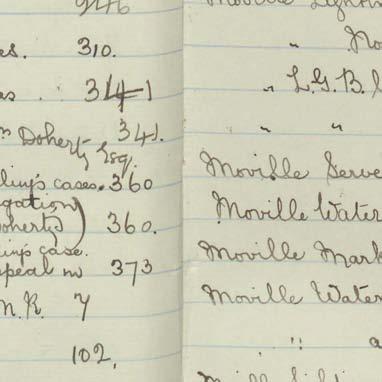 946
es. 310.
es. 341
m Doherty Esq. 341.
ling's cases. 360
gation
oherty) 360.
ling's case.
peal in 373
M.R. 7
102.
Moville
" No
" L.G.B.
" "
Moville Serve
Moville Water
Moville Mark
Moville Water
" a